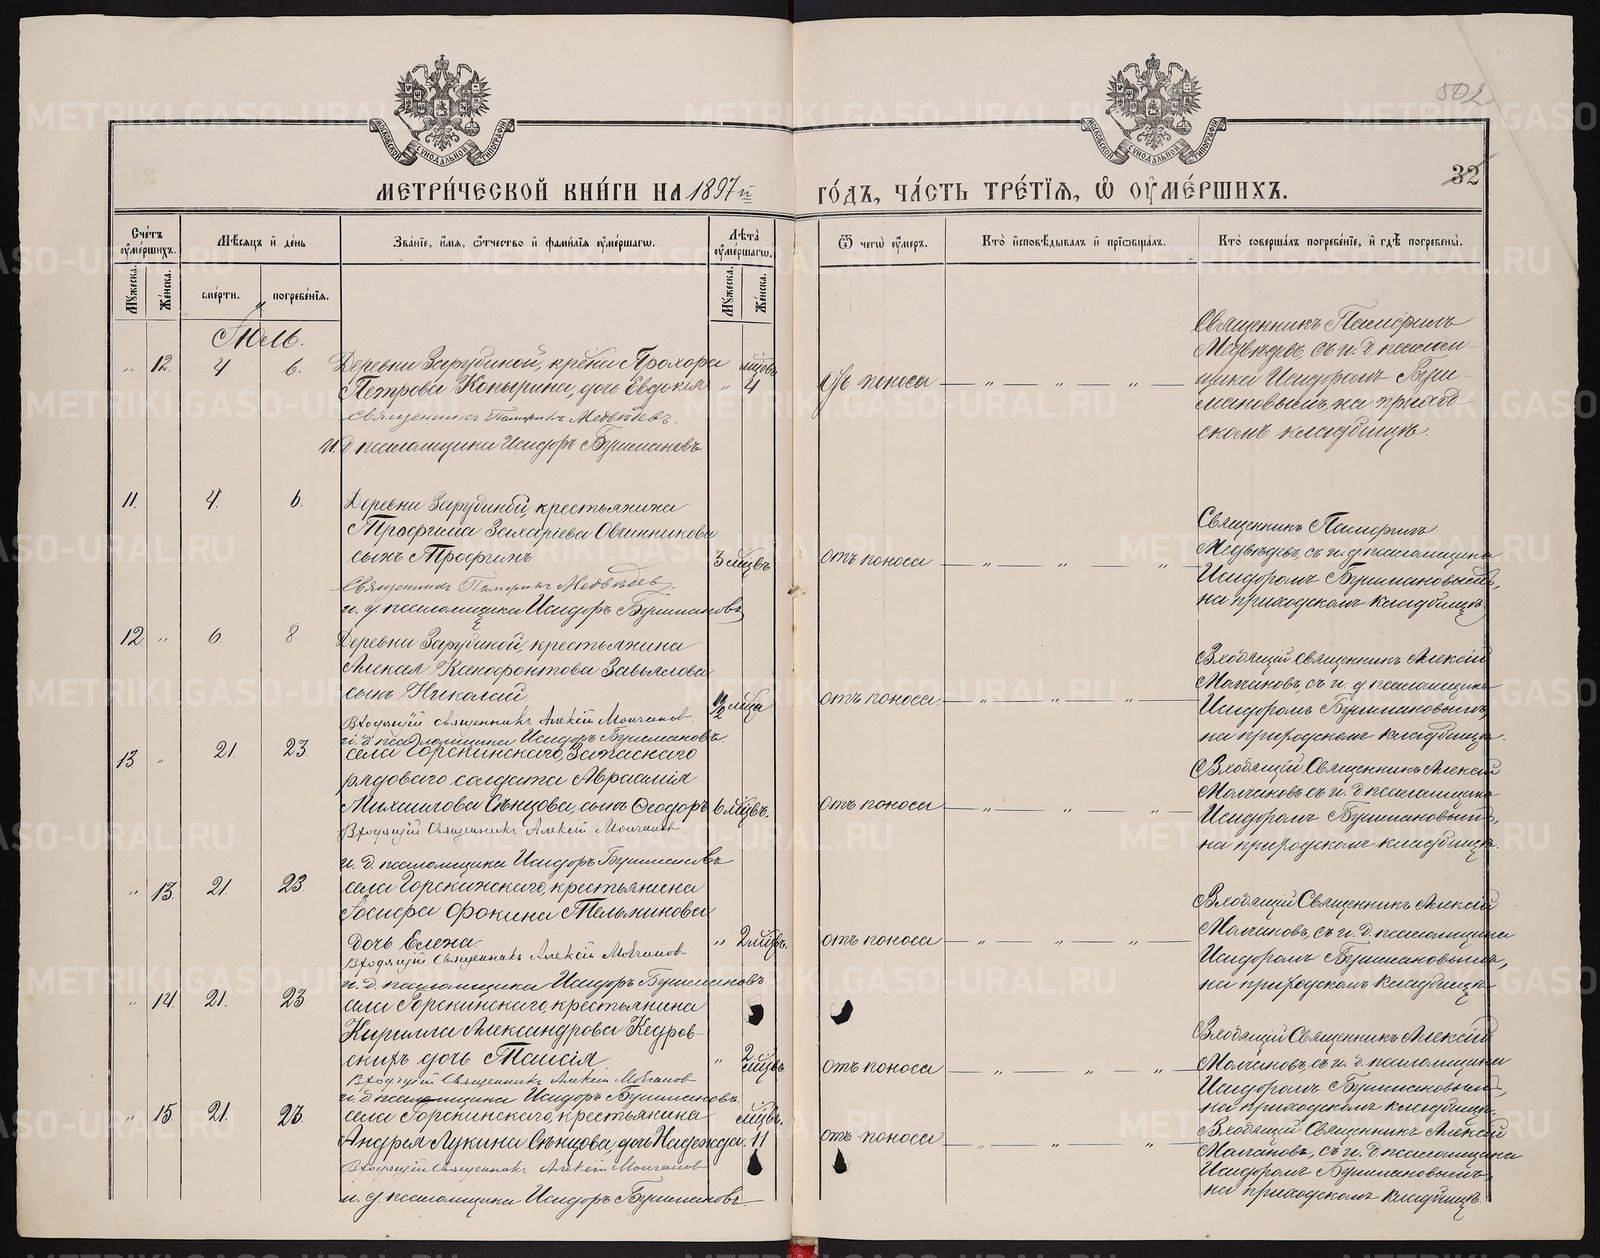 502
32
МЕТРИ́ЧЕСКОЙ КНИ́ГИ НА 1897й ГО́ДЪ, ЧА́СТЬ ТРЕ́ТЇЯ, Ѡ ОУМЕ́РШИХЪ.
Сче́тъ оуме́ршихъ.
Мѣсяцъ и де́нь
Зва́нїе, и́мя, ѻ҆́тчество и фами́лїя оуме́ршагѡ.
Лѣта̀ оуме́ршагѡ.
Ѿ чегѡ̀ оу́меръ.
Кто̀ и҆сповѣ́дывалъ и҆ прїѡбща́лъ.
Кто̀ соверша́лъ погребе́нїе, и҆ гдѣ̀ погребены̀.
Мꙋжеска.
Же́нска.
сме́рти.
погребе́нїя.
Мꙋжеска.
Же́нска.
Іюль.
„ 12. 4 6.
Деревни Зарубиной, крестьянина Прохора
Петрова Копырина, дочь Евдокія „ 4 мѣсяцовъ
Священникъ Памфилъ Медвѣдевъ.
и. д. псаломщика Исидоръ Бушмановъ.
отъ поноса — „ — „ — „ —
Священникъ Памфилъ
Медвѣдевъ, съ и. д. псалом-
щика Исидоромъ Буш-
мановымъ, на приход-
скомъ кладбищѣ.
11. 4. 6.
Деревни Зарубиной, крестьянина
Трофима Захаріева Овчинникова
сынъ Трофимъ 3 мѣсяцовъ
Священникъ Памфилъ Медвѣдевъ.
и. д. псаломщика Исидоръ Бушмановъ
отъ поноса — „ — „ — „
Священникъ Памфилъ
Медвѣдевъ, съ и. д. псаломщика
Исидоромъ Бушмановымъ,
на приходскомъ кладбищѣ.
12 „ 6. 8.
Деревни Зарубиной, крестьянина
Ксенофонтова Завьялова
сынъ Николай 1½ мѣсяца
Входящій священникъ Алексій Молчановъ.
и. д. псаломщика Исидоръ Бушмановъ.
отъ поноса. — „ — „ — „ —
Входящій священникъ Алексій
Молчановъ, съ и. д. псаломщика
Исидоромъ Бушмановымъ,
на приходскомъ кладбищѣ.
13 „ 21. 23.
села Горскинскаго, Запаснаго
рядоваго солдата Авраамія
Михаилова Сѣнцова, сынъ Ѳеодоръ 6 мѣсяцовъ.
Входящій Священникъ Алексій Молчановъ.
и. д. псаломщика Исидоръ Бушмановъ
отъ поноса — „ — „ — „ —
Входящій Священникъ Алексій
Молчановъ съ и. д. псаломщика
Исидоромъ Бушмановымъ,
на приходскомъ кладбищѣ.
„ 13. 21. 23
села Горскинскаго, крестьянина
Іосифа Фокина Тельминова
дочь Елена. „ 2 мѣсяцовъ.
Входящій Священникъ Алексій Молчановъ
и. д. псаломщика Исидоръ Бушмановъ.
отъ поноса — „ — „ — „ —
Входящій Священникъ Алексій
Молчановъ, съ и. д. псаломщика
Исидоромъ Бушмановымъ,
на приходскомъ кладбищѣ
„ 14 21. 23.
села Горскинскаго, крестьянина
Кирилла Александрова Кедров-
скихъ дочь Таисія „ 2 мѣсяцовъ
Входящій Священникъ Алексій Молчановъ
и. д. псаломщика Исидоръ Бушмановъ.
отъ поноса — „ — „ — „ —
Входящій Священникъ Алексій
Молчановъ, съ и. д. псаломщика
Исидоромъ Бушмановымъ,
на приходскомъ кладбищѣ.
„ 15 21. 23.
села Горскинскаго, крестьянина
Андрея Лукина Сѣнцова, дочь Надежда. 11 мѣсяцовъ.
Входящій Священникъ Алексій Молчановъ
и. д. псаломщика Исидоръ Бушмановъ.
отъ поноса — „ — „ — „ —
Входящій Священникъ Алексій
Молчановъ, съ и. д. псаломщика
Исидоромъ Бушмановымъ,
на приходскомъ кладбищѣ.
METRIKI.GASO-URAL.RU